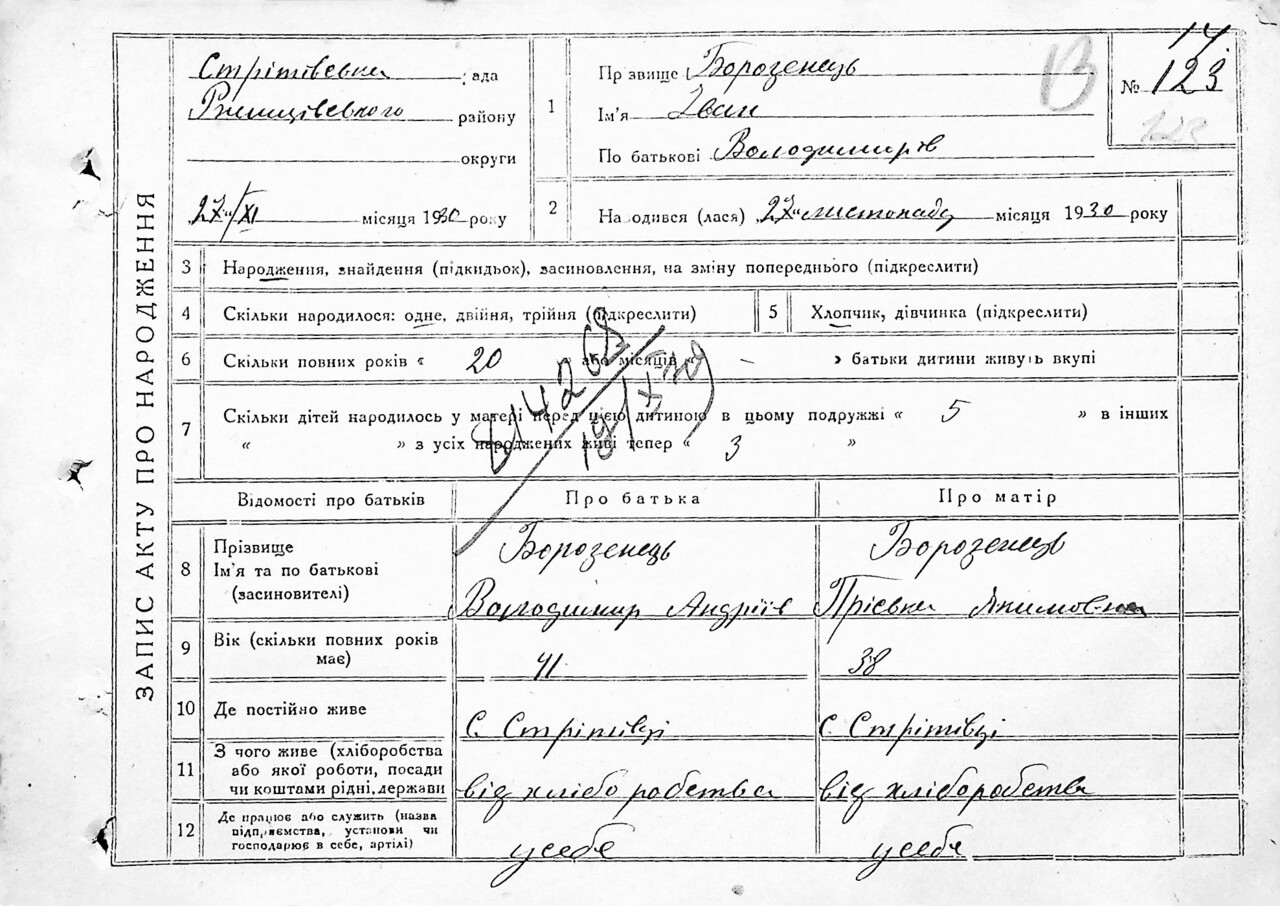 ЗАПИС АКТУ ПРО НАРОДЖЕННЯ
Стрітівська рада
Ржищівського району
округи
27/XI місяця 1930 року
1
Прізвище Борозенець
Ім'я Іван
По батькові Володимирів
В
14
№ 123
123
2 Народився (лася) 27 листопада місяця 1930 року
3 Народження, знайдення (підкидьок), засиновлення, на зміну попереднього (підкреслити)
4 Скільки народилося: одне, двійня, трійня (підкреслити)
5 Хлопчик, дівчинка (підкреслити)
6 Скільки повних років « 20 або місяців « – » батьки дитини живуть вкупі
7 Скільки дітей народилось у матері перед цією дитиною в цьому подружжі « 5 » в інших
« » з усіх народжених живі тепер « 3 »
Відомості про батьків Про батька Про матір
8 Прізвище
Ім'я та по батькові
(засиновителі)
Борозенець Борозенець
Володимир Андріїв Пріська Якимовна
9 Вік (скільки повних років
має)
41 38
10 Де постійно живе С. Стрітівці С. Стрітівці
11 З чого живе (хліборобства
або якої роботи, посади
чи коштами рідні, держави
від хліборобства від хліборобства
12 Де працює або служить (назва
підприємства, установи чи
господарює в себе, артілі)
у себе у себе